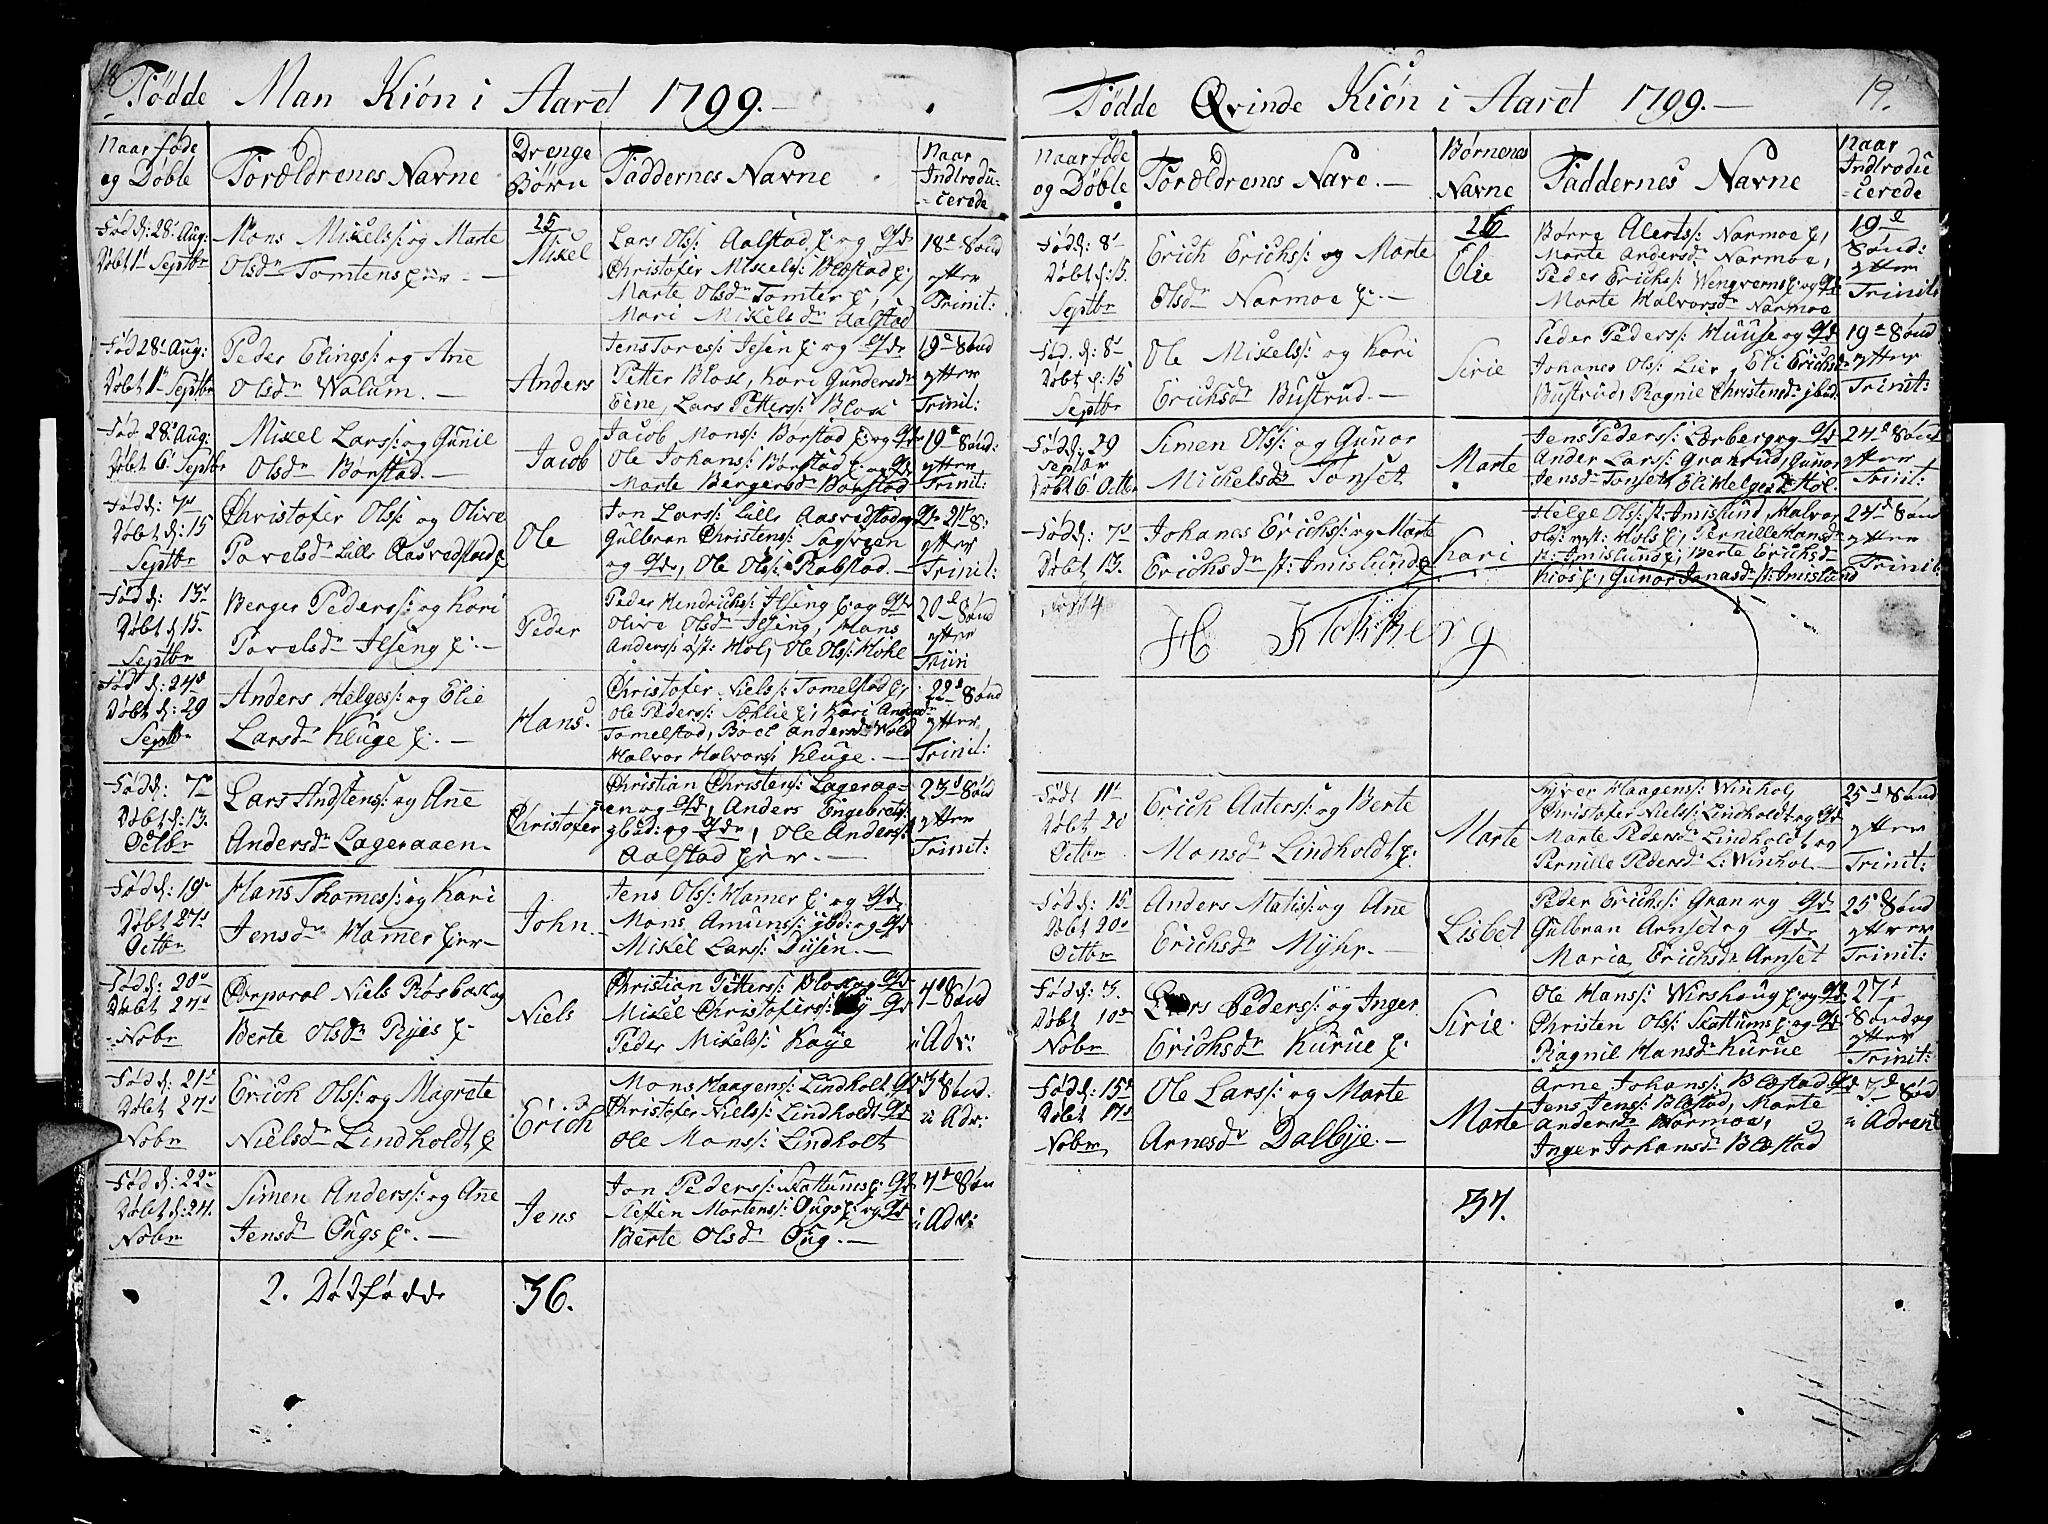 18
Fødde Man Kiön i Aaret 1799.
Naar føde
og Døbte
Forældrenes Navne
Drenge
Børn
Faddernes Navne
Naar
Indtrodu-
cerede
Fød d: 28 Aug:
Døbt 1t Septbr
Mons Mikels: og Marte
Olsdr Tomtens Eier
25
Mikel
Lars Ols: Aalstad E: og Qde
Christofer Mikels: Blæstad E:,
Marte Olsdr Tomter E,
Mari Mikelsdr Aalstad
18e Sönd
efter
Trinit:
Fød 28t Aug:
Døbt 1t Septbr
Peder Elings: og Ane
Olsdr Walum.
Anders
Jens Tores: E: og Qde
Petter Blok, Kari Gundersdr
Eene, Lars Petters: Blok
19e Sönd
efter
Trinit:
Fød 28t Aug:
Døbt 6t Septbr
Mikel Lars: og Gunil
Olsdr Børstad.
Jacob
Jacob Mons: Børstad E: og Qde
Ole Johans: Børstad E: og Qde
Marte Bergersdr Børstad
19e Sönd:
efter
Trinit:
Fød d: 7de
Døbt d: 15
Septbr
Christofer Ols: og Olive
Povelsdr Lille Aasvedstad E
Ole
Jon Lars: Lille Aasvedstad og
Gulbran Christens: Sagveen
og Qde, Ole Ols: Rabstad.
21de S:
efter
Trinit:
Fød d: 13de
Døbt d 15.
Septbr
Berger Peders: og Kari
Povelsdr Ilseng E:
Peder
Peder Hendrichs: Ilseng E: og Qde
Olive Olsdr Ilseng, Hans
Anders: Hol, Ole Ols: Hohl
20de Sönd
efter
Trin
Fød d: 24de
Døbt d: 29
Septbr
Anders Helges: og Elie
Larsdr Kluge E:
Hans.
Christofer Niels: Tomelstad E,
Ole Peders: Sæhlie E, Kari Andersdr
Tomelstad, Boel Andersdr Wold
Halvor Halvors: Kluge.
22de Sönd
efter
Trinit:
Fød d: 7de
Døbt d: 13.
Octbr
Lars Andstens: og Ane
Andersdr Lageraaen.
Christofer
Christian Christens: Lageraa-
en og Qde, Anders Engebrets:
gbud: og Qde, Ole Anders:
Aalstad Eier.
23de Sönd
efter
Trinit:
Fød d: 19de
Døbt 27de
Octbr
Hans Thomes: og Kari
Jensdr Hamer Eier
John.
Jens Ols: Hamer E: og Qde,
Mons Amuns: gbd: og Qde
Mikel Lars: Diisen.
Fød d: 20de
Døbt 24de
Nobr
Corporal Niels Røsbak og
Berte Olsdr Ryes E
Niels
Christian Petters: Blok og Qde
Mikel Christofers: og Qde
Peder Mikels: Kaye
4de Sönd
i Adv:
Fød d: 21de
Døbt 24de
Nobr
Erich Ols: og Magrete
Nielsdr Lindholdt E
Erich
Mons Haagens: Lindholt, Qde
Christofer Niels: Lindholdt Qde
Ole Mons: Lindholt
3de Sönd.
i Adv:
Fød d: 22de
Døbt d: 24.
Nobr
Simen Anders: og Ane
Jensdr Ougs E:
Jens
Jon Peders: Skattums E: Qde
Steffen Mortens: Ougs E, og Qde
Berte Olsdr Oug.
4de Sön
i Adv:
2. Dødfødde
36.
19.
Fødde Qvinde Kiön i Aaret 1799.
Naar føde
og Døbte
Forældrenes Nave.
Børnenes
Navne
Faddernes Navne
Naar
Indtrodu
-cerede
Fød d: 8de
Døbt d: 15.
Septbr
Erich Erichs: og Marte
Olsdr Narmoe E:
Elie
Børre Alerts: Narmoe E,
Marte Andersdr Narmoe,
Peder Erichs: Wengvens E, og Qde
Marte Halvorsdr Narmoe
19de
Sönd:
efter
Trinit:
Fød d: 8de
Døbt d: 15
Septbr
Ole Mikels: og Kari
Erichsdr Bustrud.
Sirie
Peder Peders: Huuse og Qde
Johanes Ols: Lier, Eli Erichsdr
Bustrud, Ragnie Christensdr gbud.
19de Sönd
efter
Trinit:
Fød d. 29
Septbr
Døbt 6t Octbr
Simen Ols: og Gunor
Michelsdr Tonset
Marte
Jens Peders: Lærberg og Qde
Ander Lars: Granrud, Gunor
Jensdr Tonset, Eli Helgesdr Hol:
24de Sönd
efter
Trinit:
Fød d: 7de
Døbt 13.
Johanes Erichs: og Marte
Erichsdr st: Imislund E
Kari
Helge Ols: st: Imislund, Halvor
Ols: vest: Hols E, Pernille Hansdr
st: Imislund E, Berte Erichsdr
Kiøs E, Gunor Jonasdr st: Imislund
24de Sönd
efter
Trinit:
Født 11te
Døbt 20
Octbr
Erich Aaters: og Berte
Monsdr Lindholdt E:
Marte
Syver Haagens: Winhol,
Christofer Niels: Lindholdt og Qde
Marte Pedersdr Lindholdt og
Pernille Pedersdr L: Winhol
25de Sönd
efter
Trinit:
Fød d: 15
Døbt 20de
Octbr
Anders Matis: og Ane
Erichsdr Myhr.
Lisbet
Peder Erichs: Gran og Qde
Gulbran Arnset og Qde
Maria Erichsdr Arnset
25 Sönd
efter
Trinit:
Fød d: 5.
Døbt 10de
Nobr
Lars Peders: og Inger
Erichsdr Kurue E:
Sirie
Ole Hans: Wirshoug E, og Qde
Christen Ols: Skattums E: og Qde
Ragnil Hansdr Kurue
27de
Söndag
efter
Trinit:
Fød d: 15de
Døbt 17de
Nobr
Ole Lars: og Marte
Arnesdr Dalbye.
Marte
Arne Johans: Blæstad Qde
Jens Jens: Blæstad, Marte
Andersdr Narmoe,
Inger Johansdr Blæstad
3de Sönd
i Advent
34.